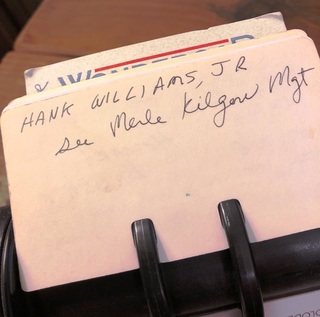 HANK WILLIAMS, JR
See Merle Kilgore Mgt